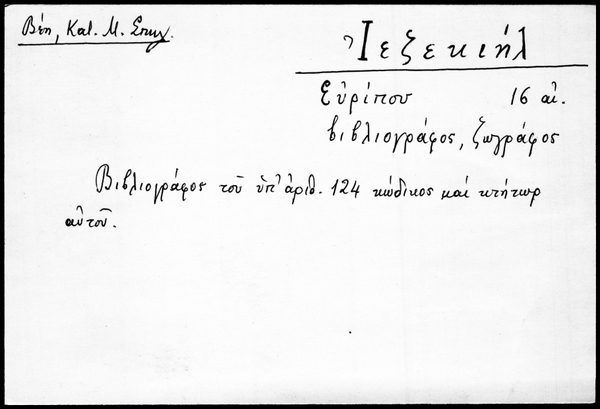 Βέη, Κατ. Μ. Σπηλ.
Ἰεζεκιήλ
Εὐρίπου 16 αἰ.
βιβλιογράφος, ζωγράφος
Βιβλιογράφος τοῦ ὑπ' ἀριθ. 124 κώδικος καὶ κτήτωρ
αὐτοῦ.